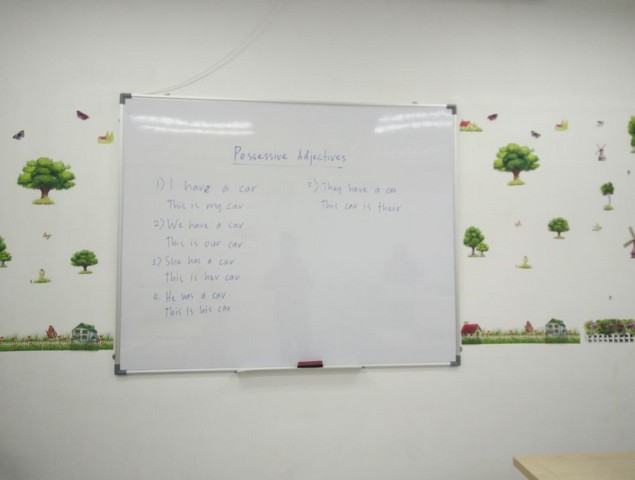 Possessive Adjectives
1) I have a car
This is my car
2) We have a car
This is our car
3) She has a car
This is her car
4. He has a car
This is his car
5) They have a car
This car is their